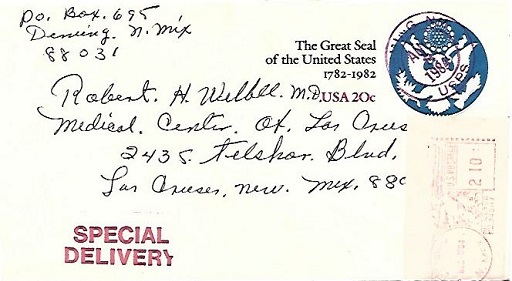 P.O. Box. 695
Deming, N. Mix
88031
The Great Seal
of the United States
1782-1982
USA 20c
DEMING, N.
AUG
1984
USPS
Robert. H. M.D.
Medical. Center. Of. Las Cruces
2435. Telshor. Blvd.
Las Cruces, new. Mex. 880
2 10
SPECIAL
DELIVERY